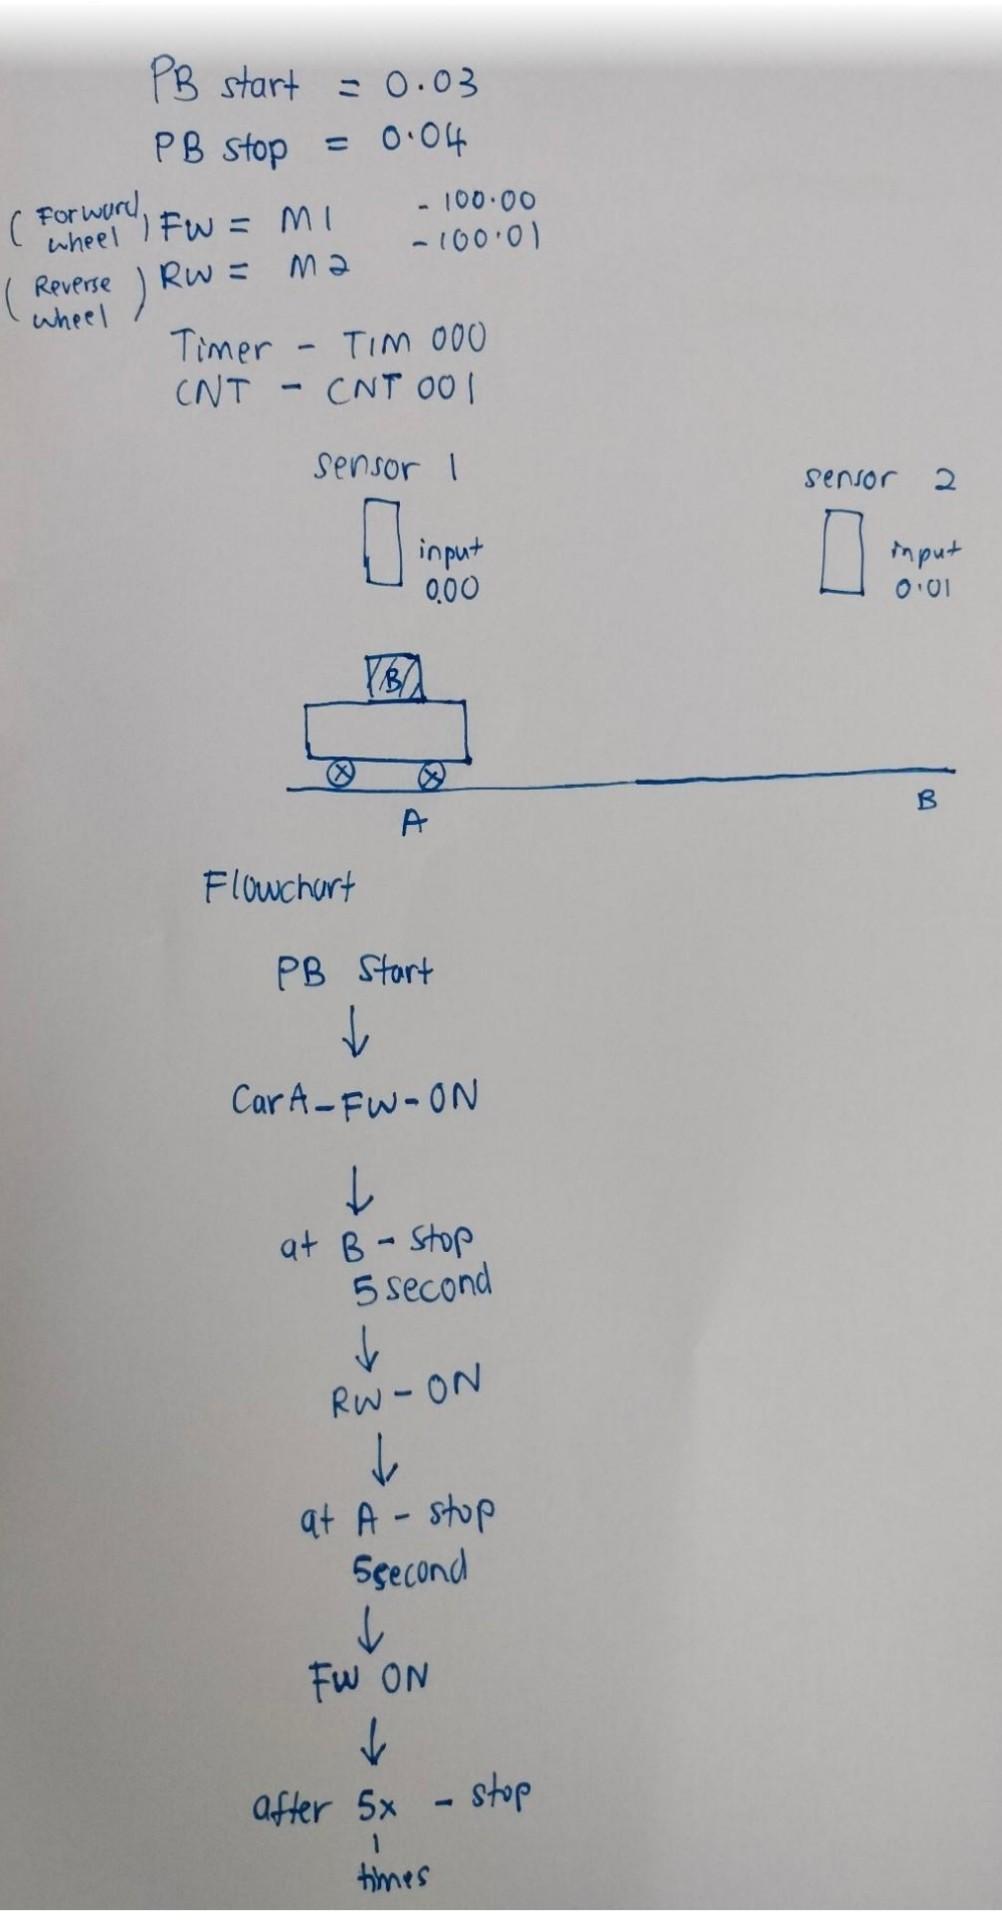 PB start = 0.03
PB stop = 0.04
(Forward wheel) FW = M1 - 100.00
(Reverse wheel) RW = M2 - 100.01
Timer - TIM 000
CNT - CNT 001
sensor 1
sensor 2
input
0.00
input
0.01
B
A
B
Flowchart
PB Start
↓
Car A - FW - ON
↓
at B - stop
5 second
↓
RW - ON
↓
at A - stop
5 second
↓
FW ON
↓
after 5x - stop
times